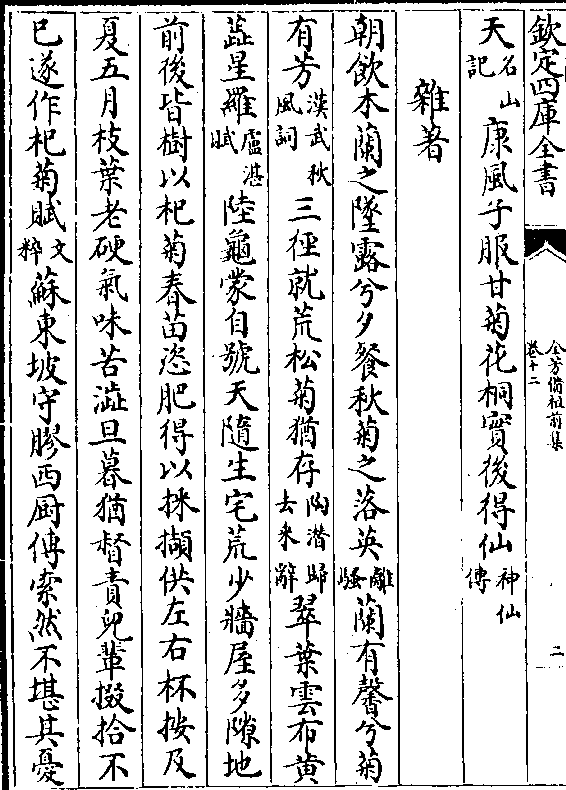 欽定四庫全書
全芳備祖前集
卷十二
二
天名山記康風子服甘菊花桐實後得仙神仙傳
雜著
朝飲木蘭之墜露兮夕餐秋菊之落英離騷蘭有馨兮菊
有芳漢武秋風詞三徑就荒松菊猶存陶潛歸去來辭翠葉雲布黄
蕋星羅盧湛賦陸龜蒙自號天隨生宅荒少牆屋多隙地
前後皆樹以杞菊春苗恣肥得以採擷供左右杯按及
夏五月枝葉老硬氣味苦澁旦暮猶督責兒輩掇拾不
已遂作杞菊賦文粹蘇東坡守膠西厨傳索然不堪其憂